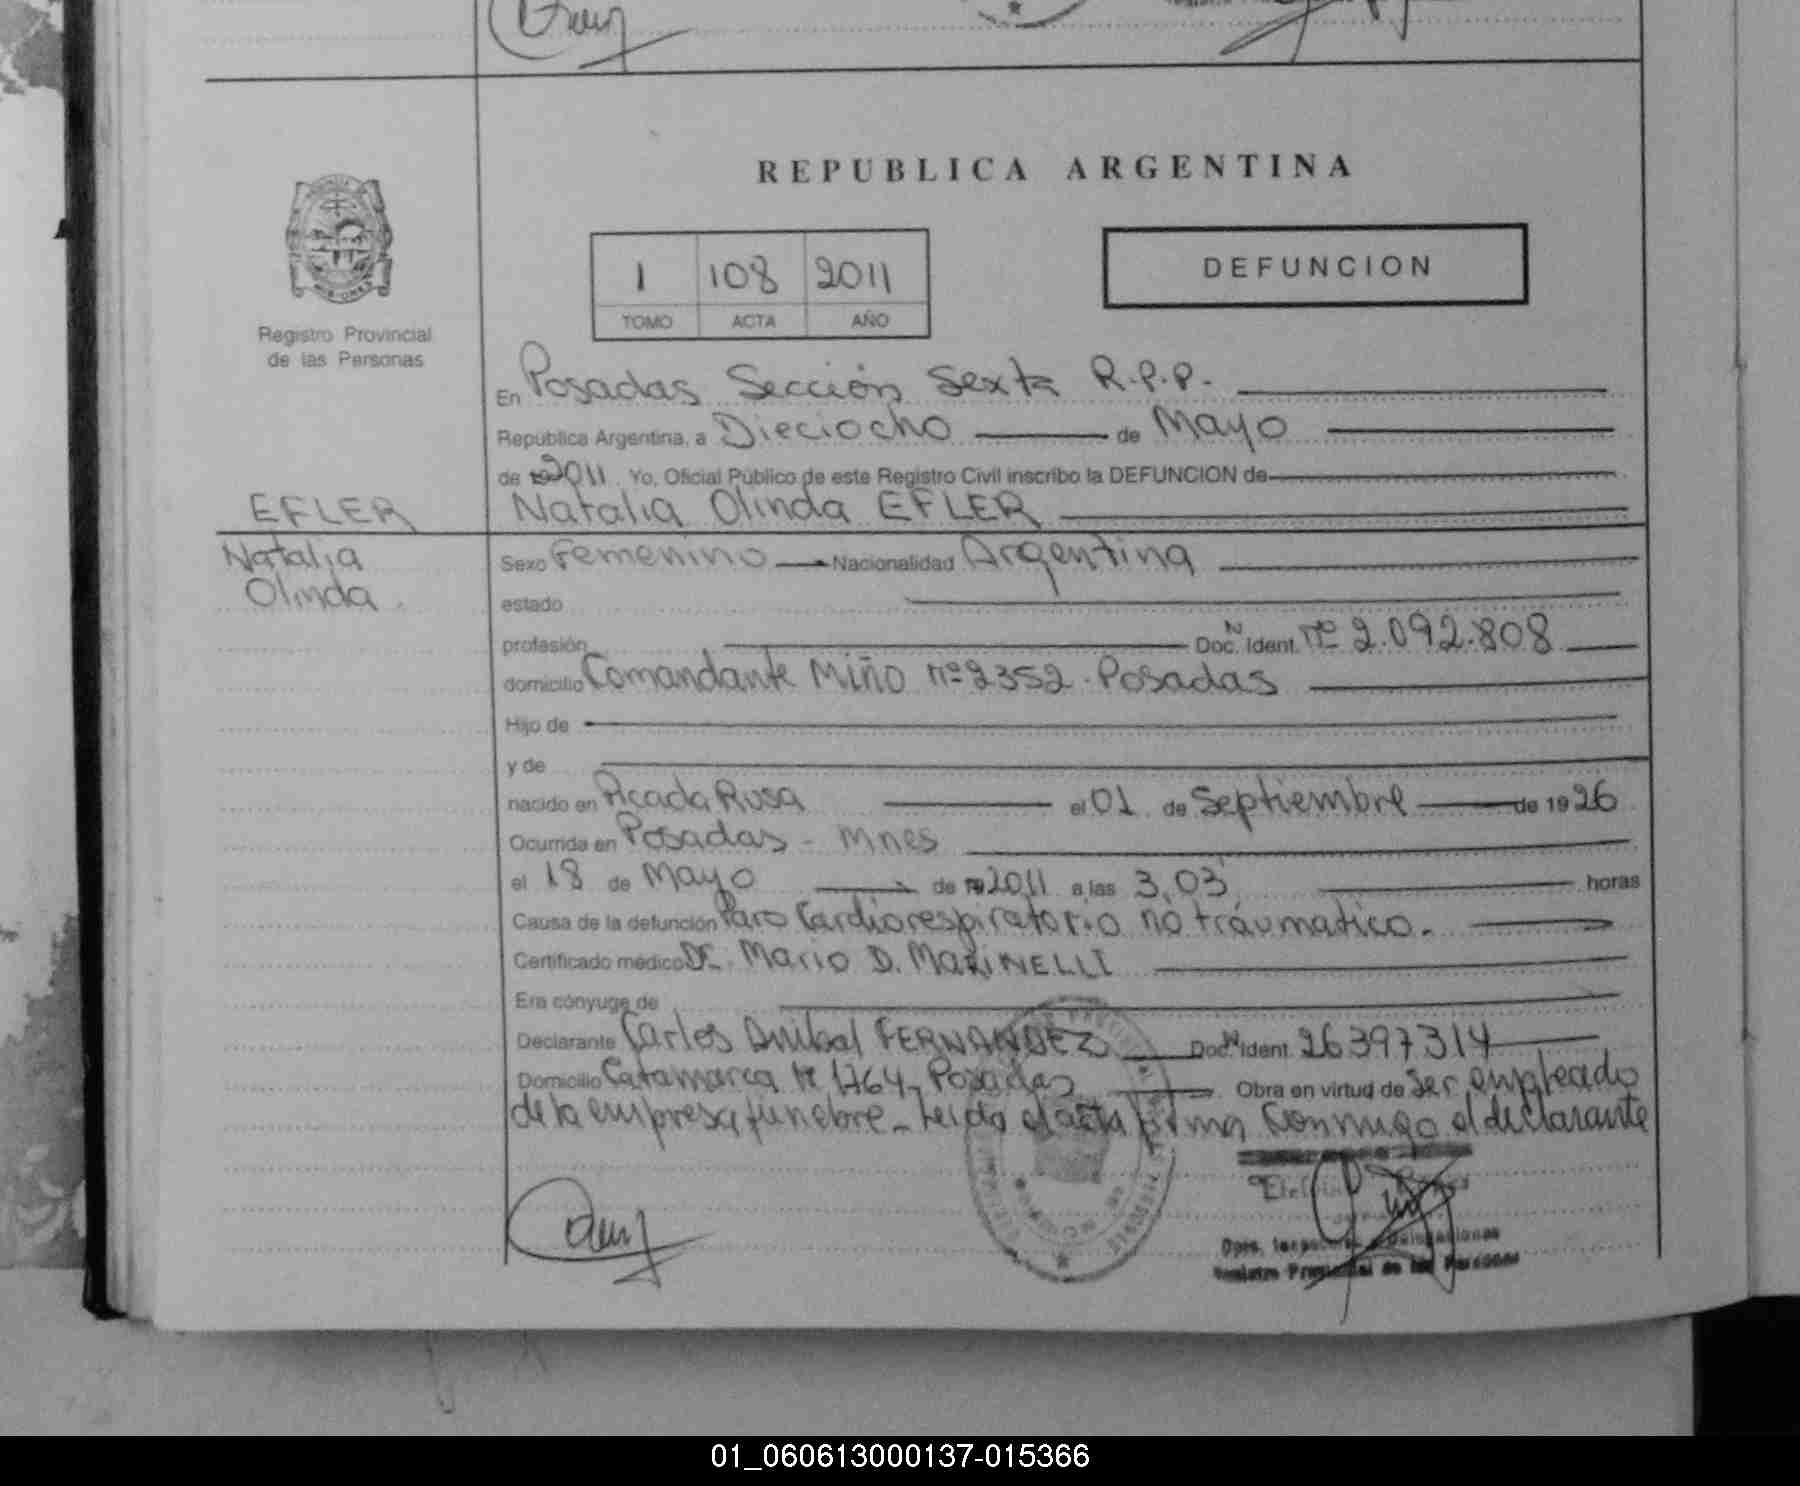 REPUBLICA ARGENTINA
1 108 2011
TOMO ACTA AÑO
DEFUNCION
Registro Provincial
de las Personas
En Posadas Sección Sexta R.P.P.
República Argentina, a Dieciocho de Mayo
de 19 2011. Yo, Oficial Público de este Registro Civil inscribo la DEFUNCION de
EFLER
Natalia Olinda EFLER
Natalia
Olinda
Sexo Femenino Nacionalidad Argentina
estado
profesión Doc. N Ident. nº 2.092.808
domicilio Comandante Miño nº 2352 - Posadas
Hijo de
y de
nacido en Picada Rusa el 01 de Septiembre de 1926
Ocurrida en Posadas - Mnes
el 18 de Mayo de 19 2011 a las 3,03 horas
Causa de la defunción Paro Cardiorespiratorio no traumatico.
Certificado médico Dr. Mario D. MARINELLI
Era cónyuge de
Declarante Carlos Anibal FERNANDEZ Doc. N Ident. 26397314
Domicilio Catamarca Nº 1764, Posadas Obra en virtud de ser empleado
de la empresa funebre - Leida el acta firma conmigo el declarante
Registro Provincial de las Personas
01_060613000137-015366